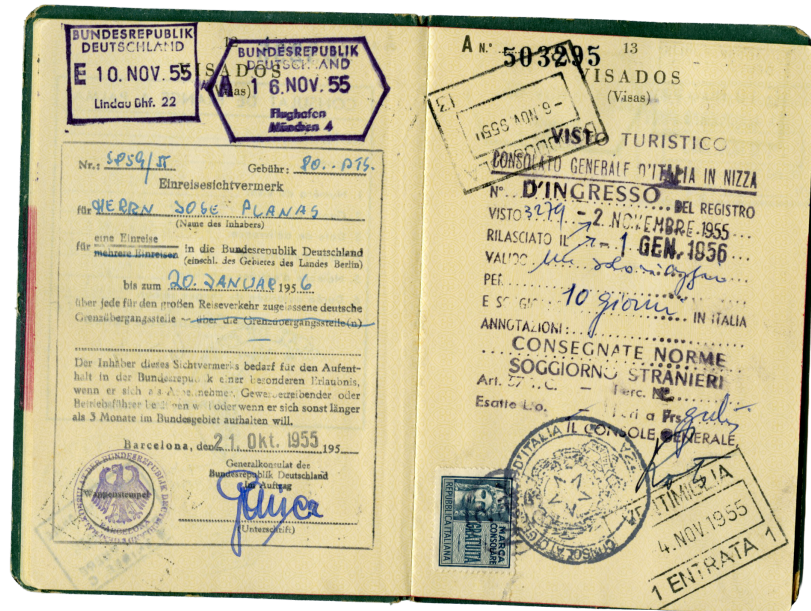 BUNDESREPUBLIK
DEUTSCHLAND
E 10. NOV. 55
Lindau Bhf. 22
BUNDESREPUBLIK
DEUTSCHLAND
A 16. NOV. 55
Flughafen
München 4
VISADOS
Nr.:
Gebühr: 80.- PTS.
Einreisesichtvermerk
für HERRN JOSE PLANAS
(Name des Inhabers)
für eine Einreise
mehrere Einreisen in die Bundesrepublik Deutschland
(einschl. des Gebietes des Landes Berlin)
bis zum 20. JANUAR 1956
über jede für den großen Reiseverkehr zugelassene deutsche
Grenzübergangsstelle – über die Grenzübergangsstelle(n)
Der Inhaber dieses Sichtvermerks bedarf für den Aufent-
halt in der Bundesrepublik einer besonderen Erlaubnis,
wenn er sich als Arbeitnehmer, Gewerbetreibender oder
Betriebsführer betätigen will oder wenn er sich sonst länger
als 3 Monate im Bundesgebiet aufhalten will.
Barcelona, den 21. Okt. 1955 195
Generalkonsulat der
Bundesrepublik Deutschland
Im Auftrag
Wappenstempel
(Unterschrift)
A N.º 503295
13
VISADOS
(Visas)
-6. NOV 1955
VISTO TURISTICO
CONSOLATO GENERALE D'ITALIA IN NIZZA
N° D'INGRESSO DEL REGISTRO
VISTO 3279 - 2 NOVEMBRE 1955
RILASCIATO IL 1 GEN. 1956
VALIDO
PER
E SOGGIORNO 10 giorni IN ITALIA
ANNOTAZIONI:
CONSEGNATE NORME
SOGGIORNO STRANIERI
Art.
Esatte
IL CONSOLE GENERALE
MARCA
CONSOLARE
GRATUITA
REPUBBLICA ITALIANA
VENTIMIGLIA
4. NOV. 1955
1 ENTRATA 1